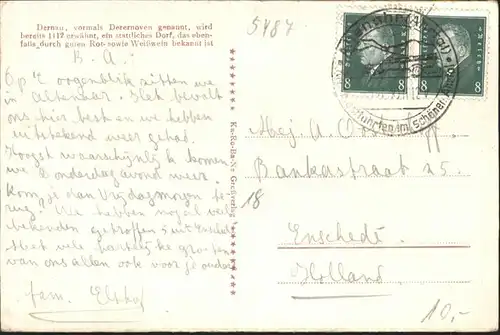 Dernau, vormals Derernoven genannt, wird
bereits 1117 erwähnt, ein stattliches Dorf, das eben-
falls durch guten Rot- sowie Weißwein bekannt ist
5487
B. A.
Op 't oogenblik zitten we
in Altenahr. Het bevalt
ons hier best en we hebben
uitstekend weer gehad.
Hoogst waarschijnlijk komen
we Donderdag avond weer.
Kom je dan Vrijdagmorgen te-
rug. We hebben nogal wat
bekenden getroffen uit Enschede
Met vele hartelijke groeten
van ons allen ook voor je ouders
fam.
Ku-Ro-Ba-Nr Großverlag
Mej. A.
Bankastraat 25.
18
Enschede
Holland
10,-
8 8